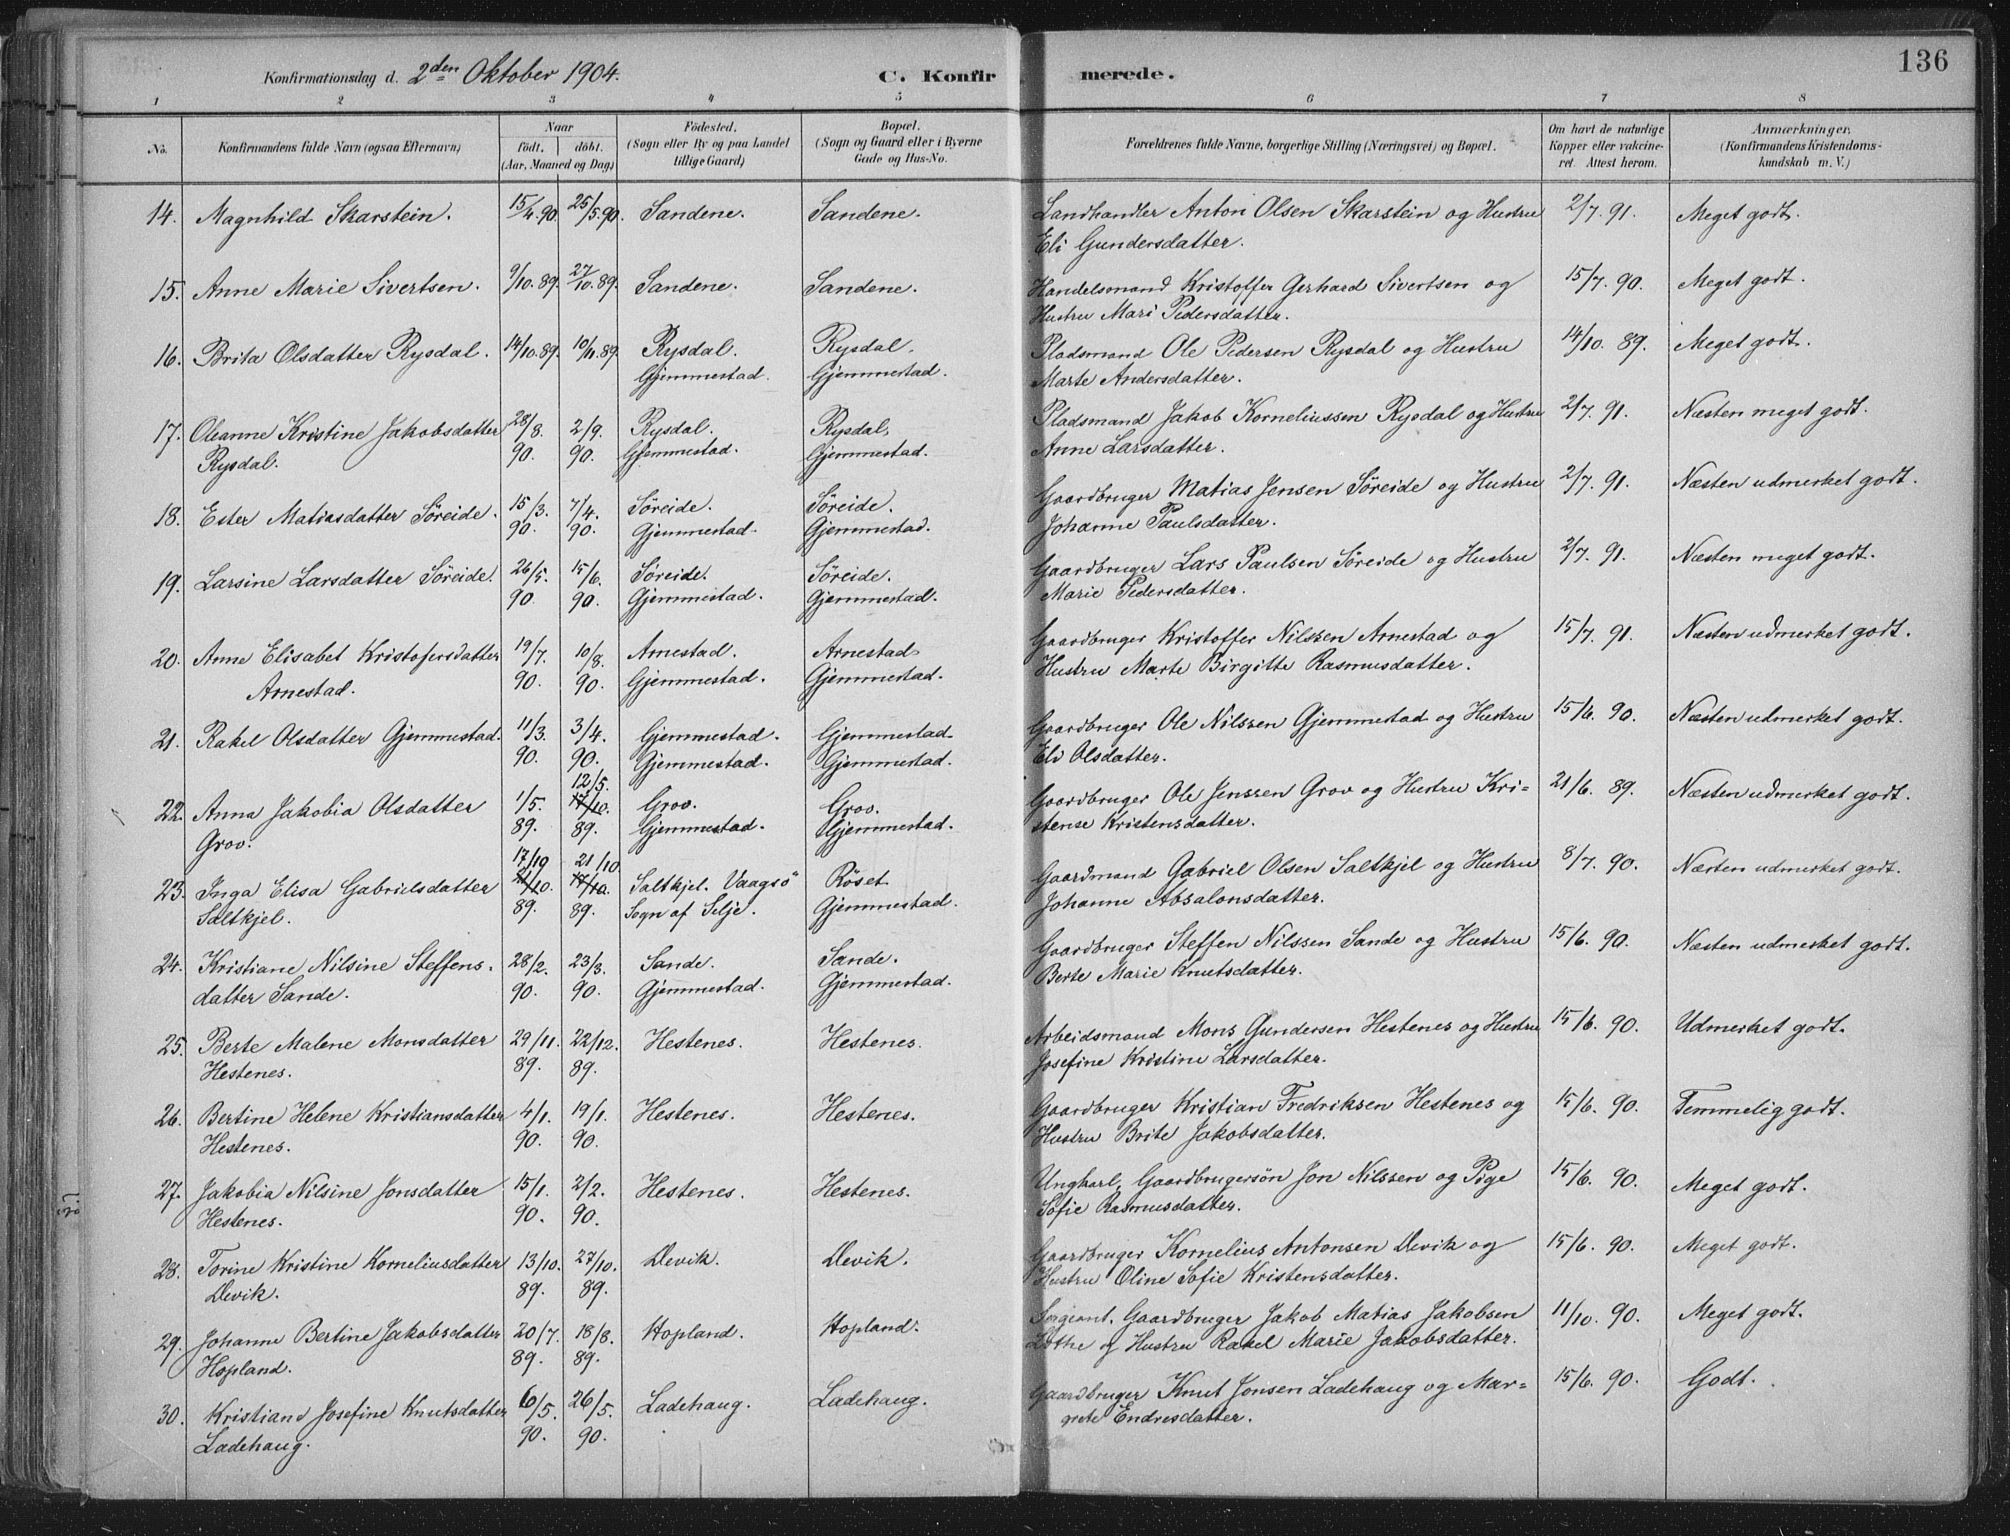 136
Konfirmationsdag d. 2den Oktober 1904. C. Konfir merede.
1 2 3 4 5 6 7 8
No. Konfirmandens fulde Navn (ogsaa Efternavn) Naar födt. döbt. (Aar, Maaned og Dag) Födested. (Sogn eller By og paa Landet tillige Gaard) Bopæl. (Sogn og Gaard eller i Byerne Gade og Hus-No. Forældrenes fulde Navne, borgerlige Stilling (Næringsvei) og Bopæl. Om havt de naturlige Kopper eller vakcineret. Attest herom. Anmærkninger. (Konfirmandens Kristendomskundskab m. V.)
14. Magnhild Skarstein. 15/4.90 25/5.90. Sandene. Sandene. Landhandler Anton Olsen Skarstein og Hustru 2/7. 91. Meget godt.
Eli Gundersdatter.
15. Anne Marie Sivertsen. 9/10.89. 27/10.89. Sandene. Sandene. Handelsmand Kristoffer Gerhard Sivertsen og 15/7. 90. Meget godt.
Hustru Mari Pedersdatter.
16. Brita Olsdatter Rysdal. 14/10.89. 10/11.89. Rysdal. Rysdal. Pladsmand Ole Pedersen Rysdal og Hustru 14/10. 89. Meget godt.
Gjemmestad. Gjemmestad. Marte Andersdatter.
17. Oleanne Kristine Jakobsdatter 28/8. 2/9. Rysdal. Rysdal. Pladsmand Jakob Korneliussen Rysdal og Hustru 2/7. 91. Næsten meget godt.
Rysdal. 90. 90. Gjemmestad. Gjemmestad. Anne Larsdatter.
18. Ester Matiasdatter Söreide. 15/3. 7/4. Söreide. Söreide. Gaardbruger Matias Jensen Söreide og Hustru 2/7. 91. Næsten udmerket godt.
90. 90. Gjemmestad. Gjemmestad. Johanne Paulsdatter.
19. Larsine Larsdatter Söreide. 26/5. 15/6. Söreide. Söreide. Gaardbruger Lars Paulsen Söreide og Hustru 2/7. 91. Næsten meget godt.
90. 90. Gjemmestad. Gjemmestad. Marie Pedersdatter.
20. Anne Elisabet Kristofersdatter 19/7. 10/8. Arnestad. Arnestad. Gaardbruger Kristoffer Nilssen Arnestad og 15/7. 91. Næsten udmerket godt.
Arnestad. 90. 90. Gjemmestad. Gjemmestad. Hustru Marte Birgitte Rasmusdatter.
21. Rakel Olsdatter Gjemmestad. 11/3. 3/4. Gjemmestad. Gjemmestad. Gaardbruger Ole Nilssen Gjemmestad og Hustru 15/6. 90. Næsten udmerket godt.
90. 90. Gjemmestad. Gjemmestad. Eli Olsdatter.
12/5.
22. Anna Jakobia Olsdatter 1/5. 17/10. Grov. Grov. Gaardbruger Ole Jenssen Grov og Hustru Kri- 21/6. 89. Næsten udmerket godt.
Grov. 89. 89. Gjemmestad. Gjemmestad. stense Kristensdatter.
17/10 21/10
23. Inga Elisa Gabrielsdatter 21/10. 17/10. Saltkjel. Vaagsö Röset Gaardmand Gabriel Olsen Saltkjel og Hustru 8/7. 90. Næsten udmerket godt.
Saltkjel. 89. 89. Sogn af Selje. Gjemmestad. Johanne Absalonsdatter.
24. Kristiane Nilsine Steffens- 28/2. 23/3. Sande. Sande. Gaardbruger Steffen Nilssen Sande og Hustru 15/6. 90. Næsten udmerket godt.
datter Sande. 90. 90. Gjemmestad. Gjemmestad. Berte Marie Knutsdatter.
25. Berte Malene Monsdatter 29/11. 22/12. Hestenes. Hestenes. Arbeidsmand Mons Gundersen Hestenes og Hustru 15/6. 90. Udmerket godt.
Hestenes. 89. 89. Josefine Kristine Larsdatter.
26. Bertine Helene Kristiansdatter 4/1. 19/1. Hestenes. Hestenes. Gaardbruger Kristian Fredriksen Hestenes og 15/6. 90. Temmelig godt.
Hestenes. 90. 90. Hustru Brite Jakobsdatter.
27. Jakobia Nilsine Jonsdatter 15/1. 2/2. Hestenes. Hestenes. Ungkarl, Gaardbrugersön Jon Nilssen og Pige 15/6. 90. Meget godt.
Hestenes. 90. 90. Sofie Rasmusdatter.
28. Torine Kristine Korneliusdatter 13/10. 27/10. Devik. Devik. Gaardbruger Kornelius Antonsen Devik og 15/6. 90. Meget godt.
Devik. 89. 89. Hustru Oline Sofie Kristensdatter.
29. Johanne Bertine Jakobsdatter 20/7. 18/8. Hopland. Hopland. Sergeant, Gaardbruger Jakob Matias Jakobsen 11/10. 90. Meget godt.
Hopland. 89. 89. Lothe og Hustru Rakel Marie Jakobsdatter.
30. Kristiane Josefine Knutsdatter 6/5. 26/5. Ladehaug. Ladehaug. Gaardbruger Knut Jonsen Ladehaug og Mar- 15/6. 90. Godt.
Ladehaug. 90. 90. grete Endresdatter.